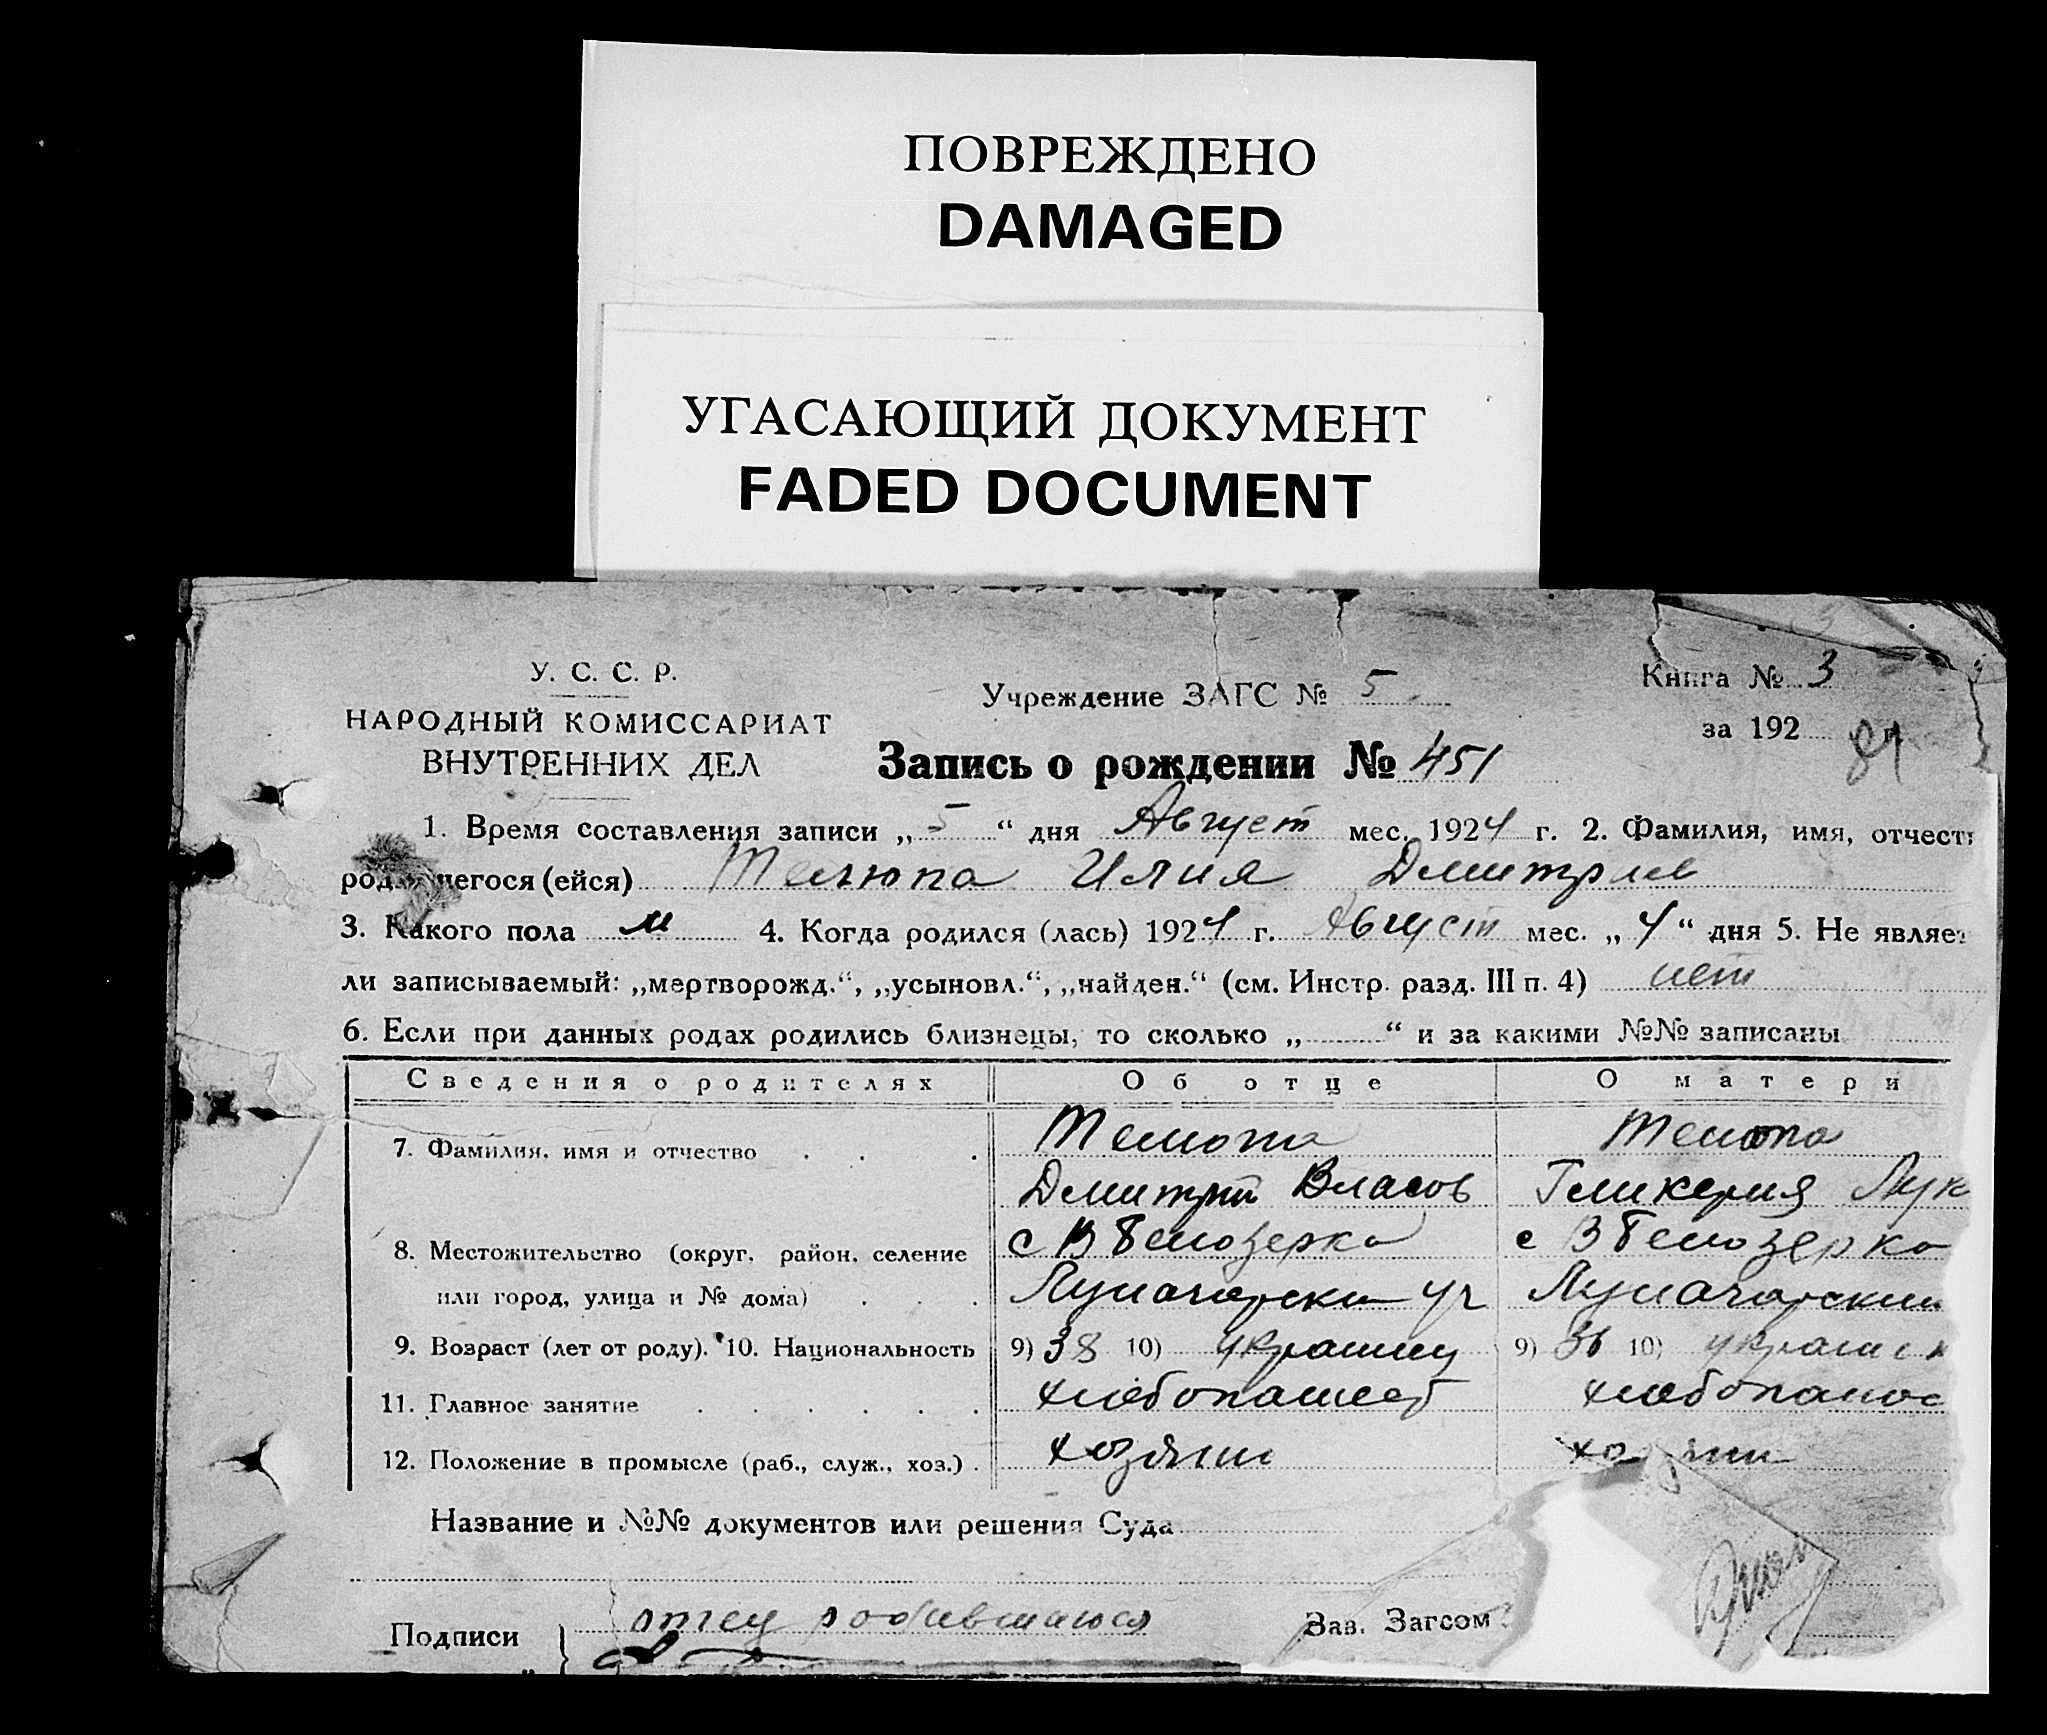 ПОВРЕЖДЕНО
DAMAGED
УГАСАЮЩИЙ ДОКУМЕНТ
FADED DOCUMENT
У. С. С. Р.
НАРОДНЫЙ КОМИССАРИАТ
ВНУТРЕННИХ ДЕЛ
Учреждение ЗАГС № 5
Книга № 3
за 192 г.
81
Запись о рождении № 451
1. Время составления записи „ 5 “ дня Август мес. 1924 г. 2. Фамилия, имя, отчеств
род шегося (ейся) Телюпа Илия Дмитриев
3. Какого пола м 4. Когда родился (лась) 1924 г. Август мес. „ 4 “ дня 5. Не являет
ли записываемый: „мертворожд.“, „усыновл.“, „найден.“ (см. Инстр. разд. III п. 4) нет
6. Если при данных родах родились близнецы, то сколько „ “ и за какими №№ записаны
Сведения о родителях Об отце О матери
7. Фамилия, имя и отчество Телюпа Телюпа
Дмитрий Власов Гликерия Лук
8. Местожительство (округ, район, селение с В Белозерка с В Белозерка
или город, улица и № дома) Луначарский уч Луначарский
9. Возраст (лет от роду). 10. Национальность 9) 38 10) украинец 9) 36 10) украинк
11. Главное занятие хлебопашество хлебопашес
12. Положение в промысле (раб., служ., хоз.) хозяин хозяин
Название и №№ документов или решения Суда
Подписи отец родившагося Зав. Загсом